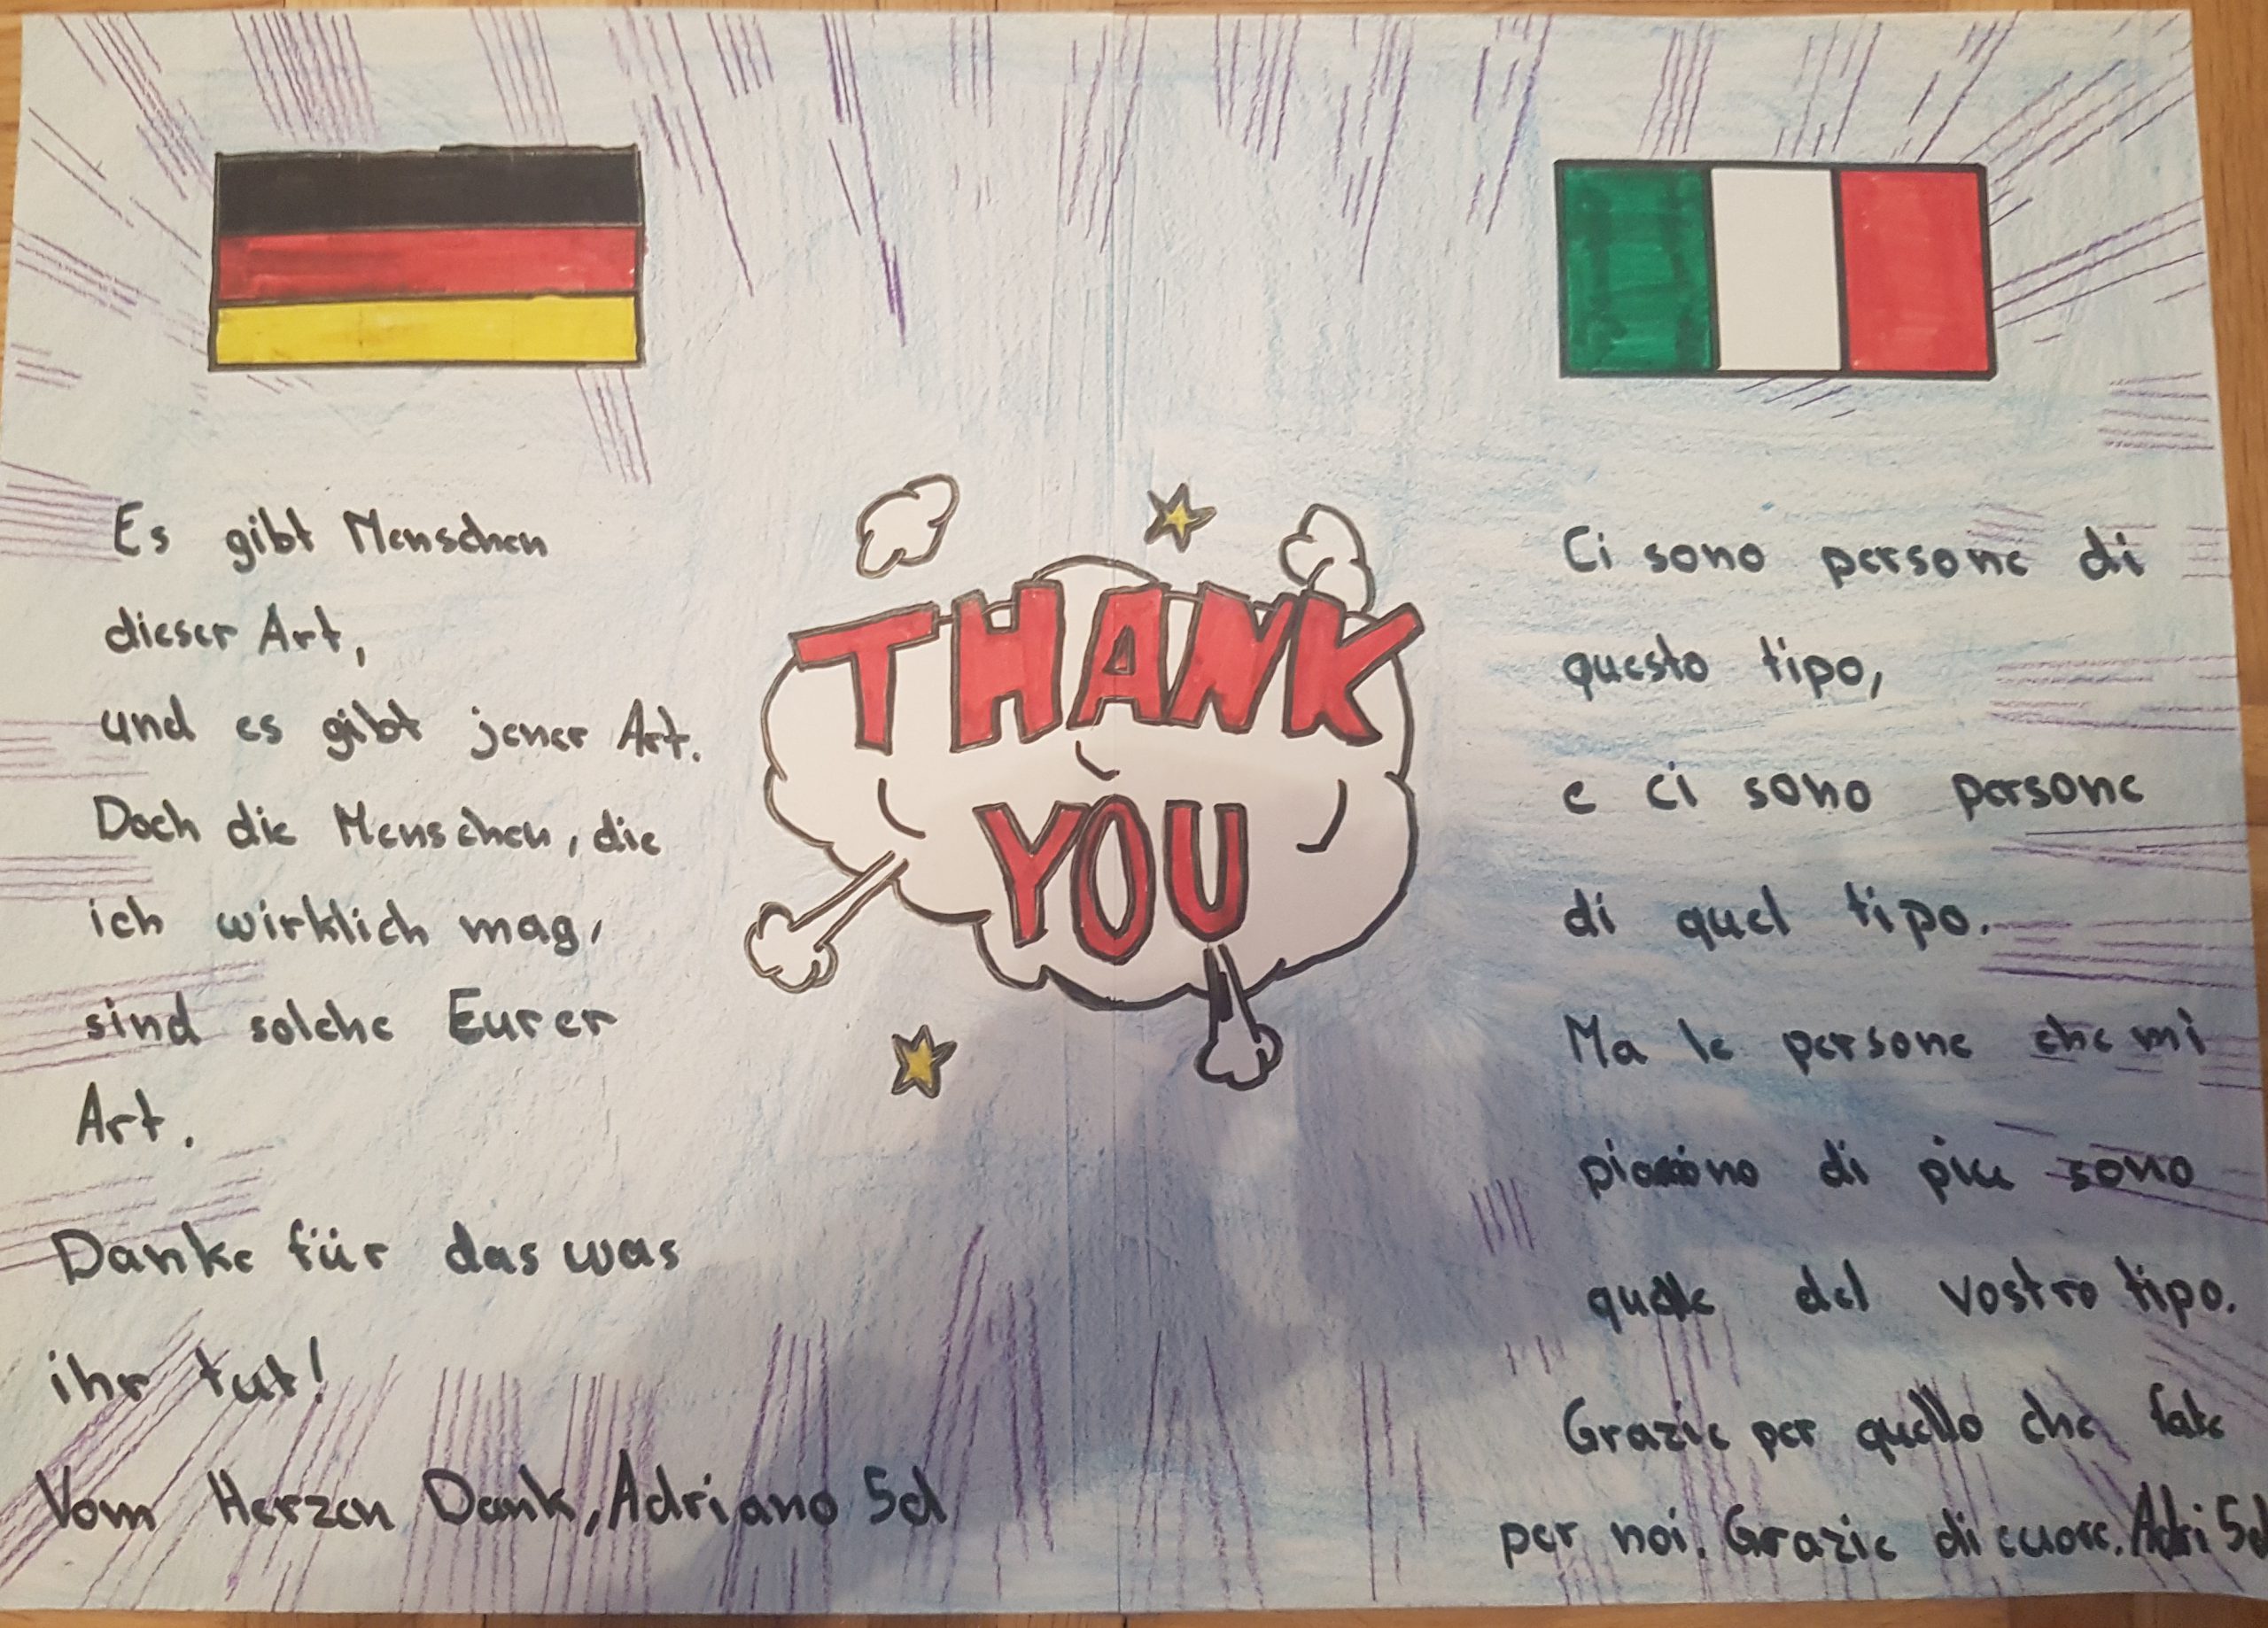 Es gibt Menschen
dieser Art,
und es gibt jener Art.
Doch die Menschen, die
ich wirklich mag,
sind solche Eurer
Art.
Danke für das was
ihr tut!
Vom Herzen Dank, Adriano 5d
THANK
YOU
Ci sono persone di
questo tipo,
e ci sono persone
di quel tipo.
Ma le persone che mi
di più sono
quelle del vostro tipo.
Grazie per quello che fate
per noi. Grazie di cuore. Adri 5d